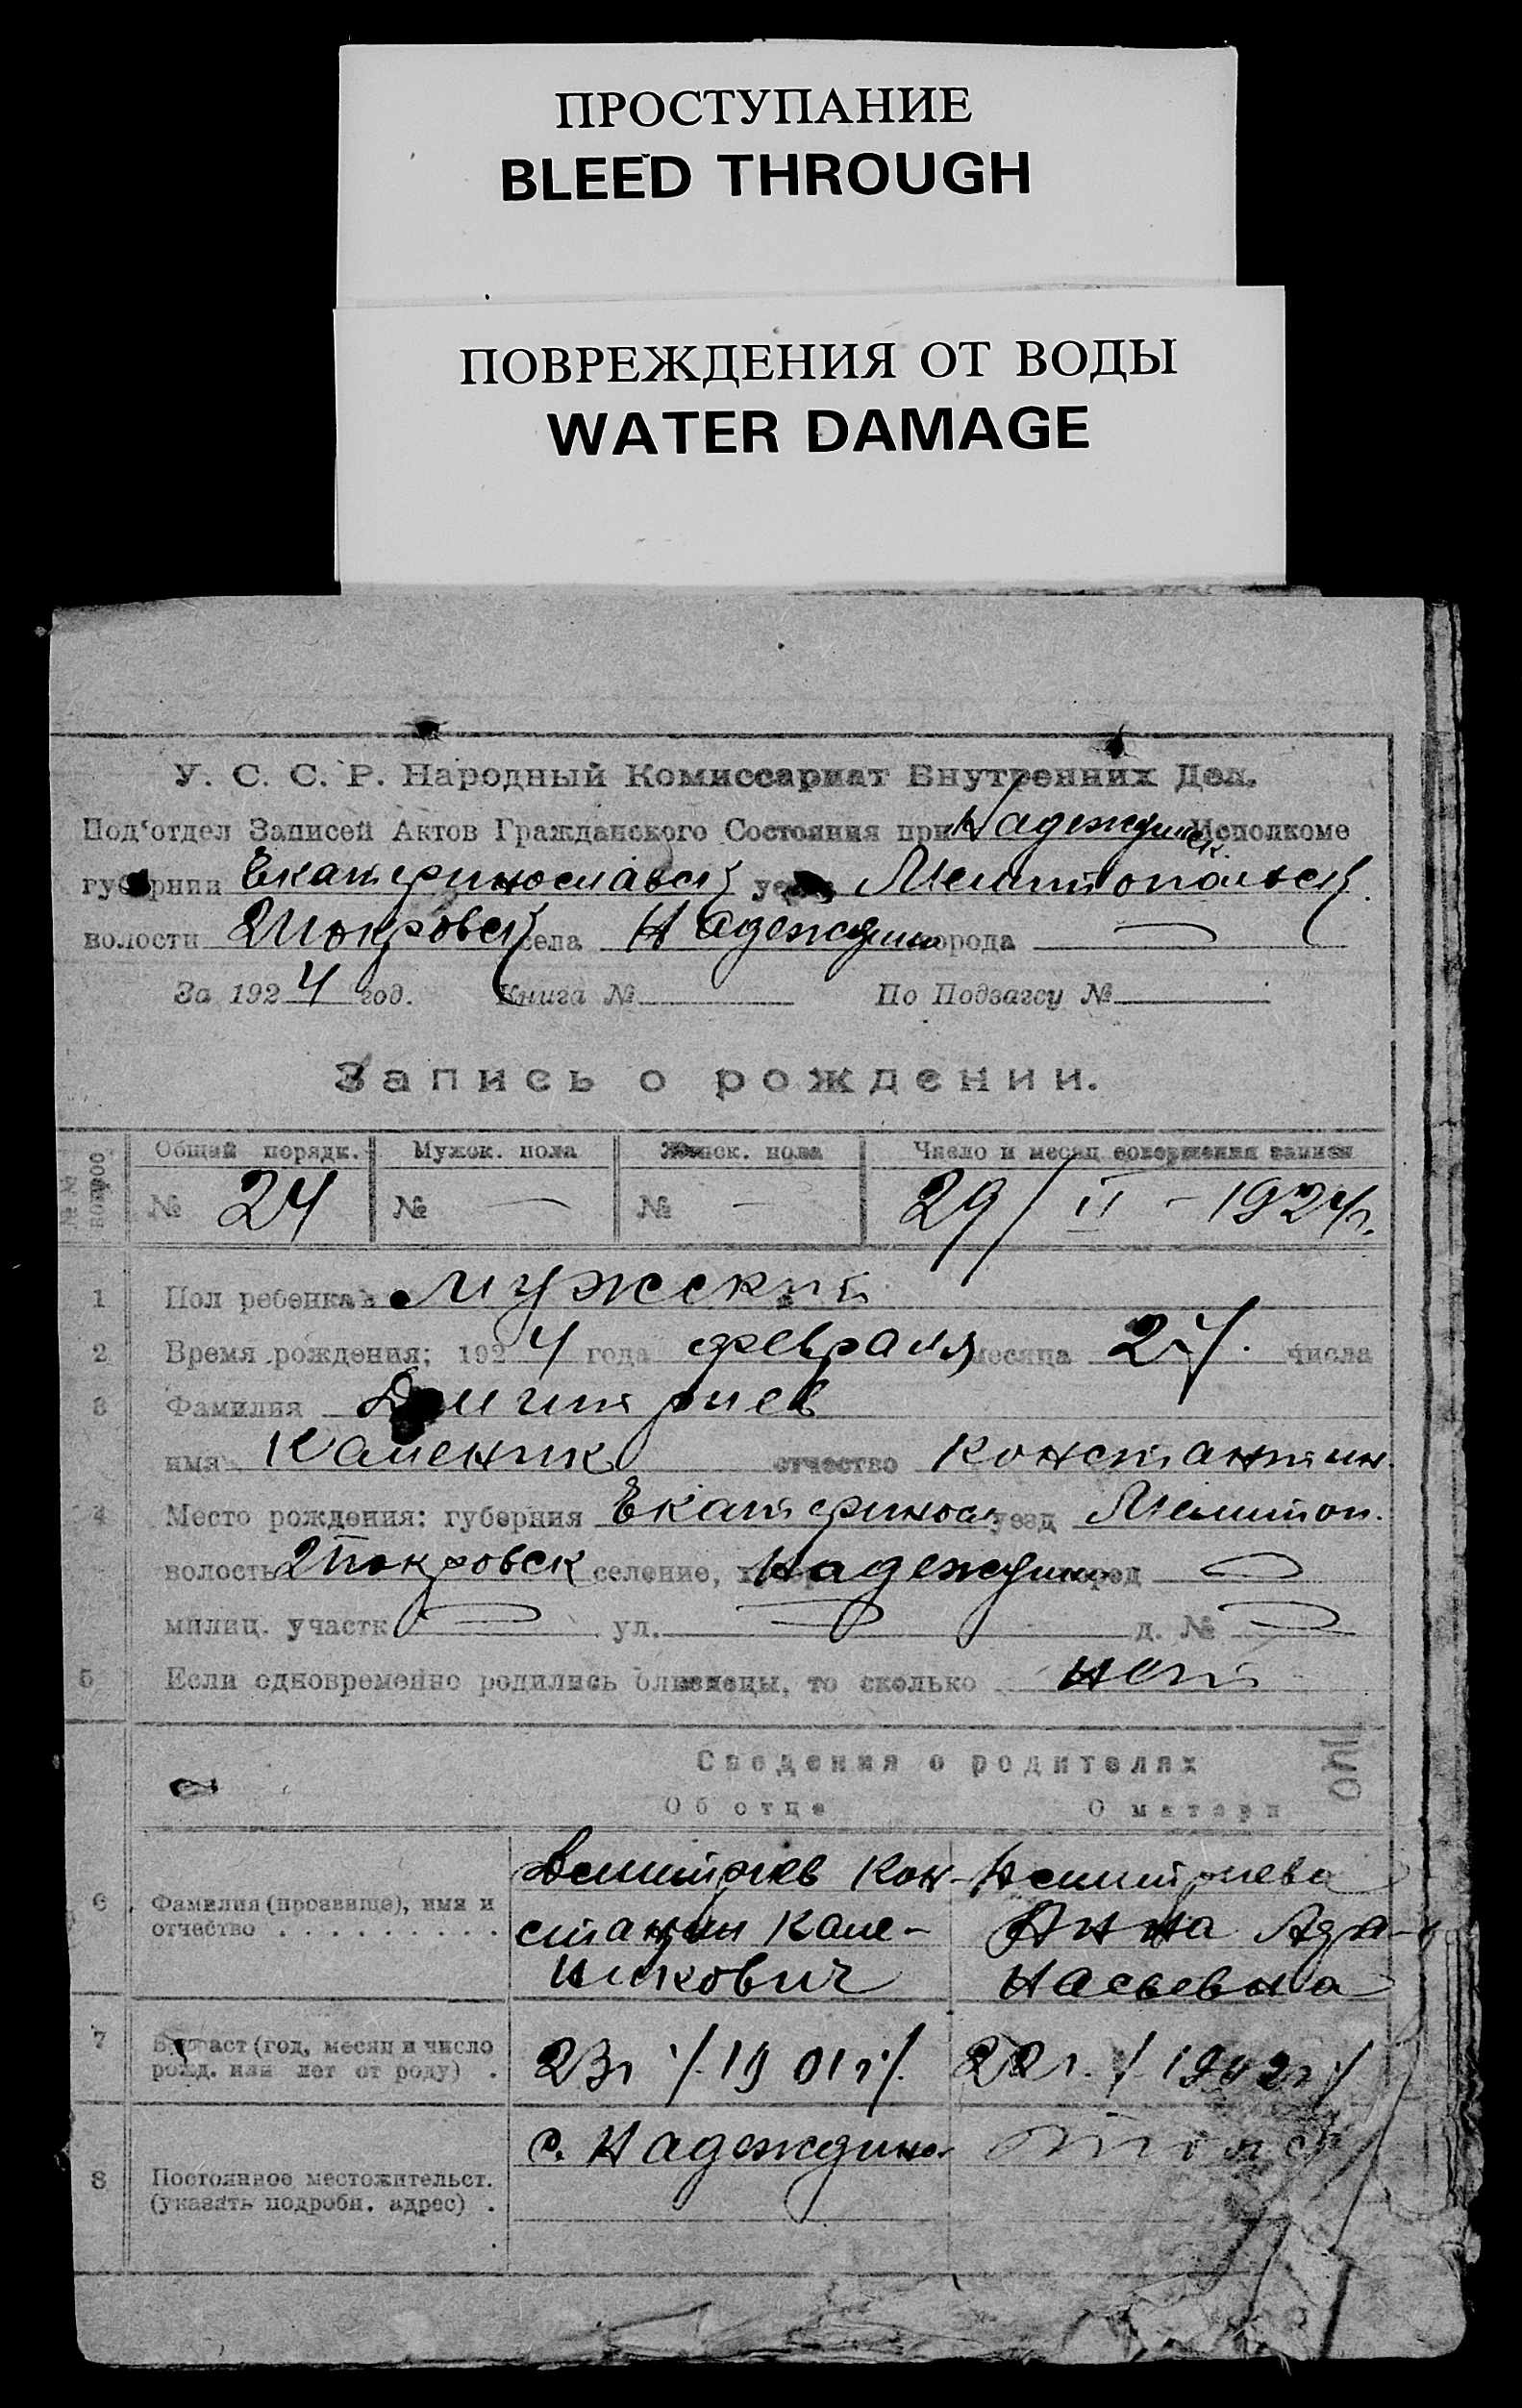 ПРОСТУПАНИЕ
BLEED THROUGH
ПОВРЕЖДЕНИЯ ОТ ВОДЫ
WATER DAMAGE
У. С. С. Р. Народный Комиссариат Внутренних Дел.
Под'отдел Записей Актов Гражданского Состояния при Надеждинск. Исполкоме
губернии Екатеринославск уезда Мелитопольск.
волости Покровск села Надеждино города —
За 1924 год. Книга № По Подзагсу №
Запись о рождении.
№№ вопрос Общий порядк. Мужск. пола Женск. пола Число и месяц совершения записи
№ 24 № — № — 29/II – 1924г.
1 Пол ребенка мужской
2 Время рождения: 1924 года февраля месяца 27. числа
3 Фамилия Дмитриев
имя Каленик отчество Константин.
4 Место рождения: губерния Екатеринос уезд Мелитоп.
волость Покровск селение, Надеждино город —
милиц. участк — ул. — д. № —
5 Если одновременно родились близнецы, то сколько нет
Сведения о родителях
Об отце О матери
6 Фамилия (прозвище), имя и отчество Дмитриев Кон- Дмитриева
стантин Кале- Анна
никович насьевна
7 Возраст (год, месяц и число
рожд. или лет от роду) . 23г /1901г/. 22г. /1902г/
с. Надеждино
8 Постоянное местожительст.
(указать подробн. адрес) .